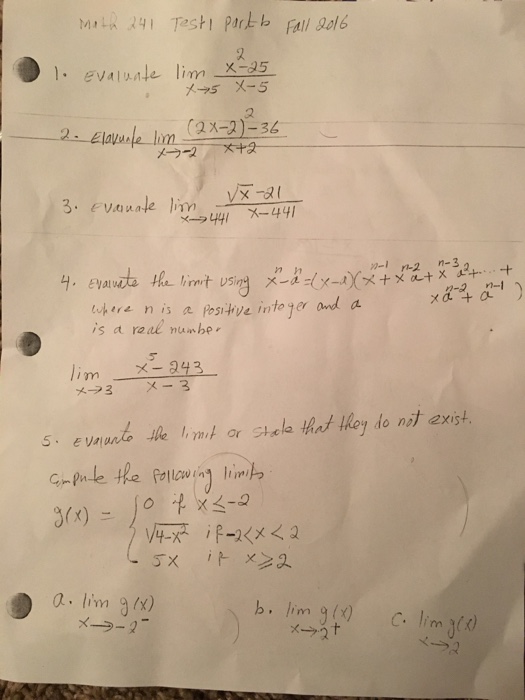 Math 241 Test 1 Part b Fall 2016
1. Evaluate lim x→5 (x²-25)/(x-5)
2. Elavuate lim x→-2 ((2x-2)²-36)/(x+2)
3. Evaruate lim x→441 (√x-21)/(x-441)
4. evaruate the limit using xⁿ-aⁿ=(x-a)(xⁿ⁻¹+xⁿ⁻²a+xⁿ⁻³a²+...+
where n is a positive integer and a xaⁿ⁻²+aⁿ⁻¹)
is a real number
lim x→3 (x⁵-243)/(x-3)
5. Evaluate the limit or state that they do not exist.
Compute the following limits
g(x) = { 0 if x≤-2
√4-x² if -2<x<2
5x if x≥2
a. lim x→-2⁻ g(x) b. lim x→2⁺ g(x) c. lim x→2 g(x)